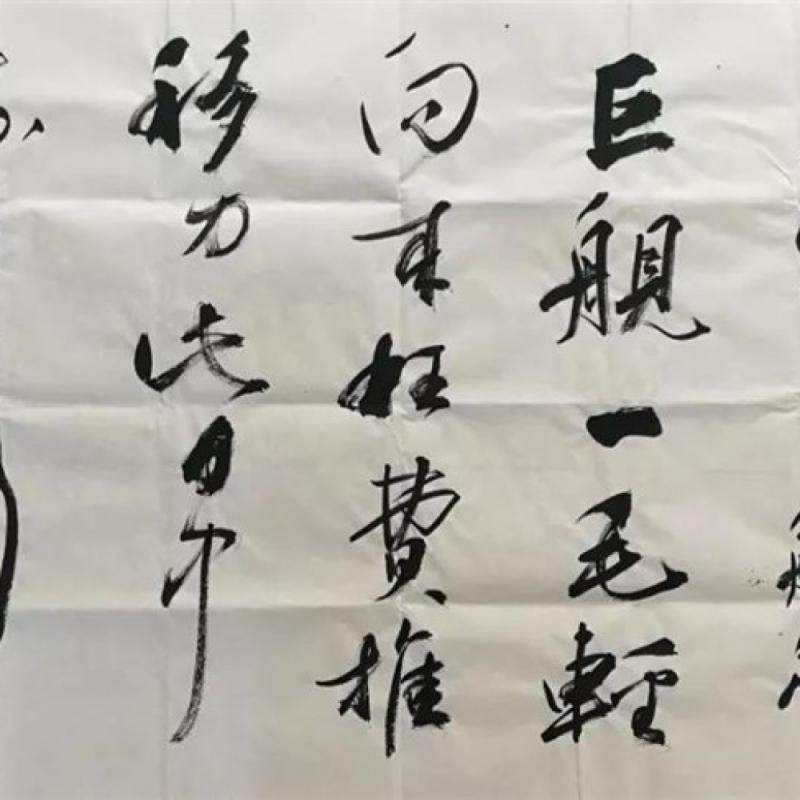 巨舰一毛輕
向来枉費推
移力此日中